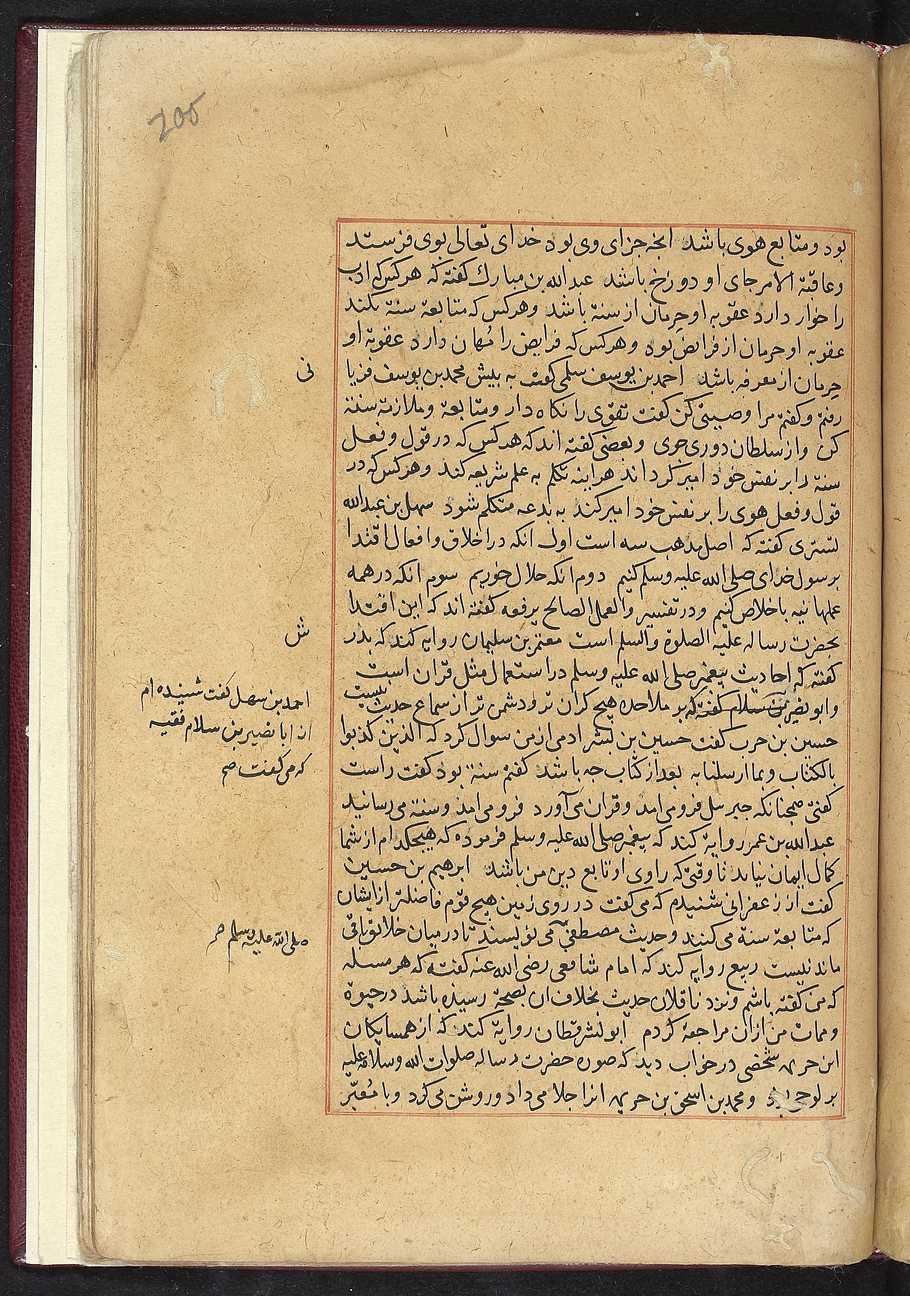 200
بود و متابع هوی باشد انچه جزای وی بود خدای تعالی بوی فرستد
و عاقبة الامر جای او دوزخ باشد عبدالله بن مبارك گفته که هر کس که ادب
را خوار دارد عقوبه او حرمان از سنة باشد و هر کس که متابعة سنة نکند
عقوبه او حرمان از فرایض بود و هر کس که فرایض را مُهان دارد عقوبة او
حرمان از معرفه باشد احمد بن یوسف سلمی گفت به پیش محمد بن یوسف فریا
نی
رفتم و گفتم مرا وصیتی کن گفت تقوی را نگاه دار و متابعة و ملازمة سنة
کن و از سلطان دوری جوی و بعضی گفته اند که هر کس که در قول و فعل
سنة را بر نفس خود امیر گرداند هراینه تکلم به علم شریعه کند و هر کس که در
قول و فعل هوی را بر نفس خود امیر کند به بدعه متکلم شود سهل بن عبدالله
تستری گفته که اصل مذهب سه است اول انکه در اخلاق و افعال اقتدا
برسول خدای صلی الله علیه وسلم کنیم دوم انکه حلال خوریم سوم انکه در همه
عملها نیه باخلاص کنیم و در تفسیر والعمل الصالح یرفعه گفته اند که این اقتدا
بحضرت رساله علیه الصلوة والسلم است معتمر بن سلیمان روایه کند که پدر
ش
گفته که احادیث پیغمبر صلی الله علیه وسلم در استعمال مثل قران است
و ابو نصر بن سلام گفته که بر ملاحده هیچ گران تر و دشمن تر از سماع حدیث نیست
احمد بن سهل گفت شنیده ام
از ابا نصیر بن سلام فقیه
که می گفت صح
حسین بن حرب گفت حسین بن بشر ادمی از من سوال کرد که الذین کذبوا
بالکتاب و بما ارسلنا به بعد از کتاب چه باشد گفتم سنة بود گفت راست
گفتی همچنانکه جبرئیل فرو می امد و قران می آورد فرو می امد و سنة می رسانید
عبدالله بن عمر روایه کند که پیغمبر صلی الله علیه وسلم فرموده که هیچکدام از شما
کمال ایمان نیابد تا وقتی که رای او تابع دین من باشد ابرهیم بن حسین
گفت از زعفرانی شنیدم که می گفت در روی زمین هیچ قوم فاضلتر از ایشان
که متابعة سنة می کنند و حدیث مصطفی می نویسند تا در میان خلایق باقی
صلی الله علیه وسلم صح
ماند نیست ربیع روایه کند که امام شافعی رضی الله عنه گفته که هر مسله
که من گفته باشم و نزد ناقلان حدیث بخلاف ان بصحة رسیده باشد در حیوة
و ممات من ازان مراجعة کردم ابو بشر قطان روایة کند که از همسایگان
ابن خزیمه شخصی در خواب دید که صورة حضرت رساله صلوات الله وسلامه علیه
بر لوحی و محمد بن اسحق بن خزیمه انرا جلا می داد و روشن می کرد و با معبّر